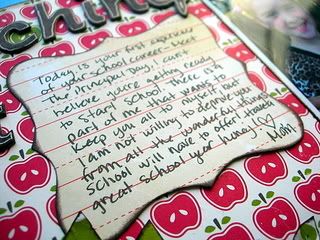 ching
Today is your first experience
of your school career - Meet
The Principal Day. I can't
believe you're getting ready
to Start School. There is a
part of me that wants to
keep you all to myself but
I am not willing to deprive you
from all the wonderful things
school will have to offer. Have a
great school year Honey! ♡
Mom